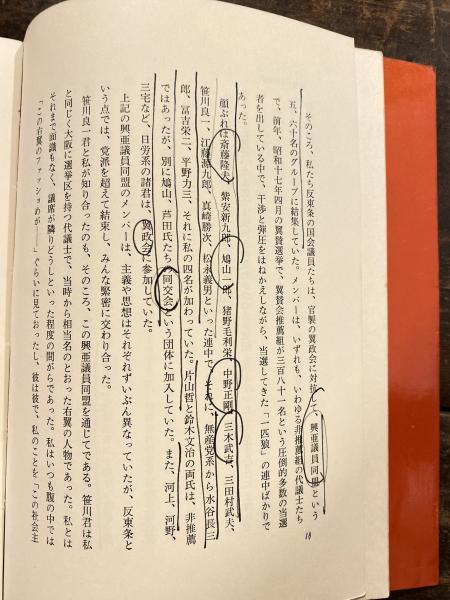 そのころ、私たち反東条の国会議員たちは、官製の翼政会に対抗して、興亜議員同盟という
五、六十名のグループに結集していた。メンバーは、いずれも、いわゆる非推薦組の代議士たち
で、前年、昭和十七年四月の翼賛選挙で、翼賛会推薦組が三百八十一名という圧倒的多数の当選
者を出している中で、干渉と弾圧をはねかえしながら、当選してきた「一匹狼」の連中ばかりで
あった。
顔ぶれは斎藤隆夫、紫安新九郎、鳩山一郎、猪野毛利栄、中野正剛、三木武吉、三田村武夫、
笹川良一、江藤源九郎、真崎勝次、松永義男といった連中で、それに、無産党系から水谷長三
郎、冨吉栄二、平野力三、それに私の四名が加わっていた。片山哲と鈴木文治の両氏は、非推薦
ではあったが、別に鳩山、芦田氏たちの同交会という団体に加入していた。また、河上、河野、
三宅など、日労系の諸君は、翼政会に参加していた。
上記の興亜議員同盟のメンバーは、主義や思想はそれぞれずいぶん異なっていたが、反東条と
いう点では、党派を超えて結束し、みんな緊密に交わり合った。
笹川良一君と私が知り合ったのも、そのころ、この興亜議員同盟を通じてである。笹川君は私
と同じく大阪に選挙区を持つ代議士で、当時から相当名のとおった右翼の人物であった。私とは
それまで面識もなく、議席が隣りどうしといった程度の間がらであった。私はいつも腹の中では
「この右翼のファッショめが――」ぐらいに見ておったし、彼は彼で、私のことを「この社会主
18